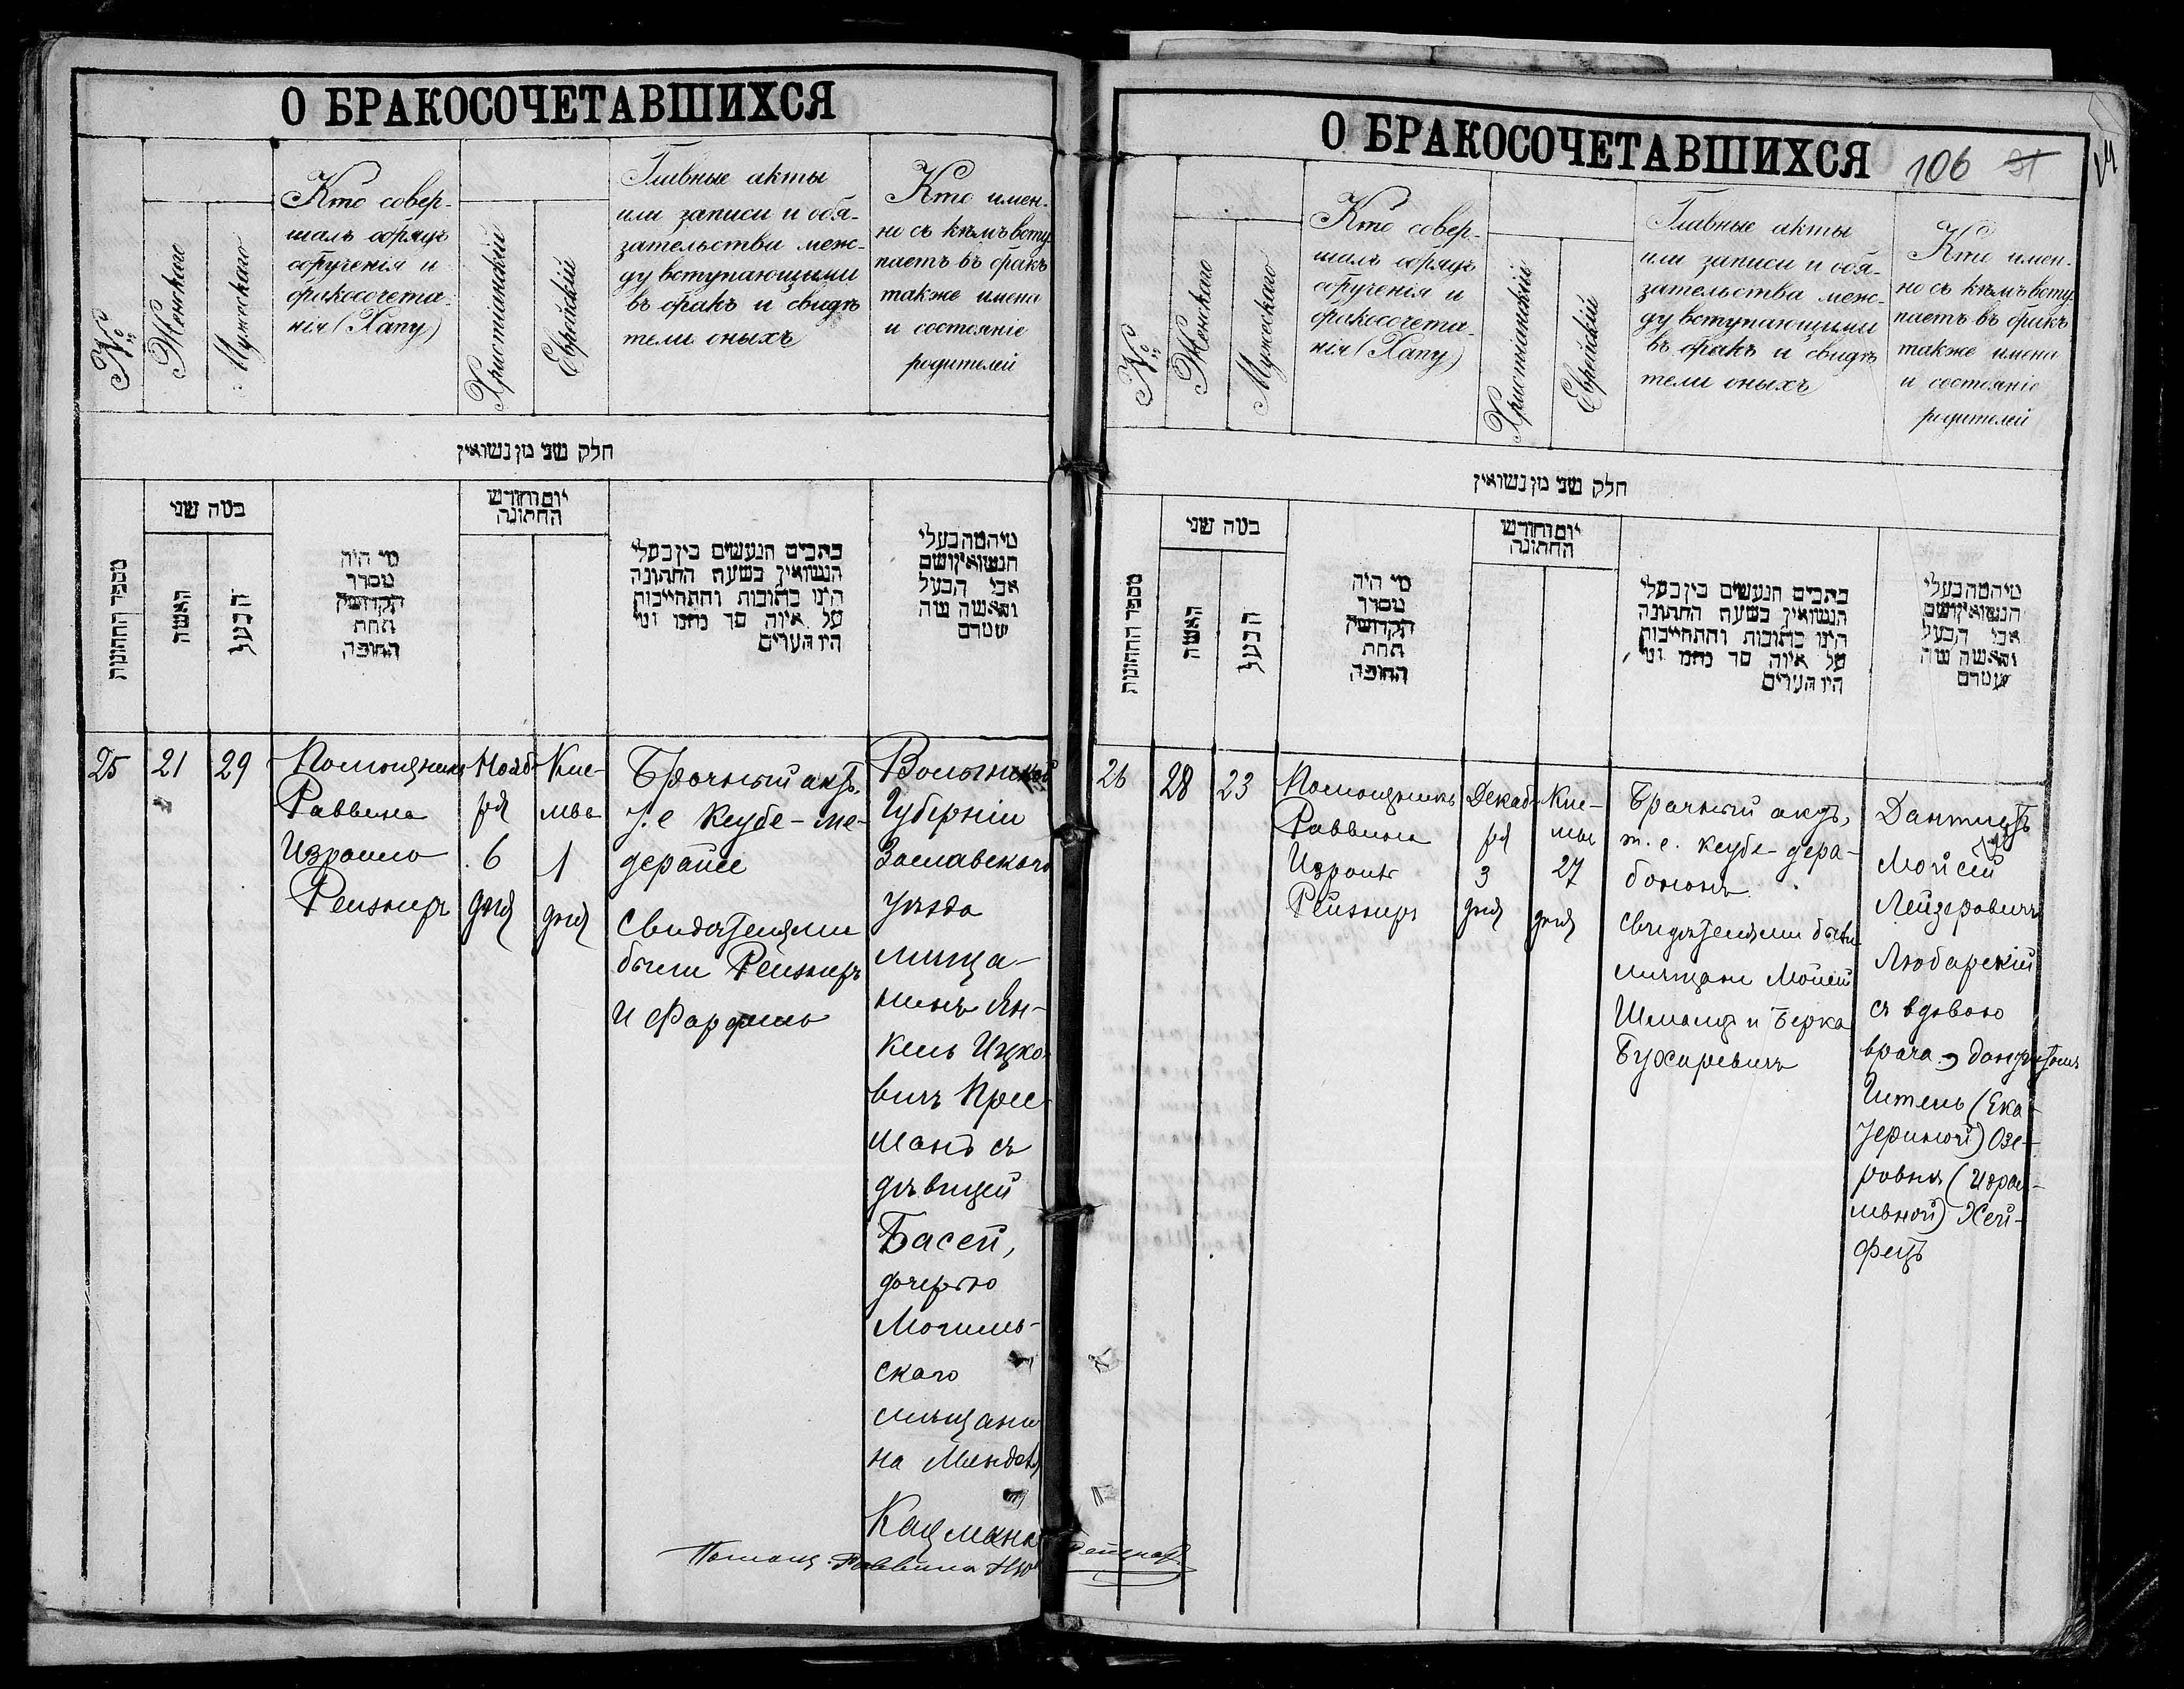 О БРАКОСОЧЕТАВШИХСЯ
№
Женскаго
Мужескаго
Кто совер-
шалъ обрядъ
обрученія и
бракосочета-
нія (Хапу)
Христіанскій
Еврейскій
Главные акты
или записи и обя-
зательства меж-
ду вступающими
въ бракъ и свидѣ
тели оныхъ
Кто имен-
но съ кѣмъ всту-
паетъ въ бракъ
также имена
и состояніе
родителей
חלק שני מן נשואין
מספר החתונות
כמה שני
האשה
הבעל
מי היה
מסדר
הקדושין
תחת
החופה
יום וחודש
החתונה
כתבים הנעשים בין בעלי
הנשואין בשעת החתונה
היגו כתובות והתחייבות
על איזה סך כתבו ומי
היו העדים
מי המה בעלי
הנשואין ושם
אבי הבעל
והאשה
25
21
29
Помощникъ
Раввина
Израиль
Рейзнеръ
Нояб-
ря
6
дня
Кис-
лва
1
дня
Брачный актъ,
т. е Ксубе-ме-
дерайсе
Свидѣтелями
были Рейзнеръ
и Фарфель
Волынской
Губерніи
Заславскаго
уѣзда
мѣща-
нинъ Ян-
кель Ицко-
вичъ
съ
дѣвицей
Басей,
дочерью
Могилъ-
скаго
мѣщани
на Мендея
Кацмана
Помощ. Раввина
О БРАКОСОЧЕТАВШИХСЯ
106
№
Женскаго
Мужескаго
Кто совер-
шалъ обрядъ
обрученія и
бракосочета-
нія (Хапу)
Христіанскій
Еврейскій
Главные акты
или записи и обя-
зательства меж-
ду вступающими
въ бракъ и свидѣ
тели оныхъ
Кто имен-
но съ кѣмъ всту-
паетъ въ бракъ
также имена
и состояніе
родителей
חלק שני מן נשואין
מספר החתונות
כמה שני
האשה
הבעל
מי היה
מסדר
הקדושין
תחת
החופה
יום וחודש
החתונה
כתבים הנעשים בין בעלי
הנשואין בשעת החתונה
היגו כתובות והתחייבות
על איזה סך כתבו ומי
היו העדים
מי המה בעלי
הנשואין ושם
אבי הבעל
והאשה
26
28
23
Помощникъ
Раввина
Израиль
Рейзнеръ
Декаб-
ря
3
дня
Кис-
лва
27
дня
Брачный актъ,
т. е. Ксубе-дера-
бононъ
Свидѣтелями были
мѣщане Мойсей
Шмалцъ и Берка
Бухаревичъ
Дантистъ
Мойсей
Лейзеровичъ
Любарскій
съ вдовою
врача, дантистомъ
Гителъ (Ека-
териной) Озе-
ровна (Израи-
левной) Хей-
фецъ